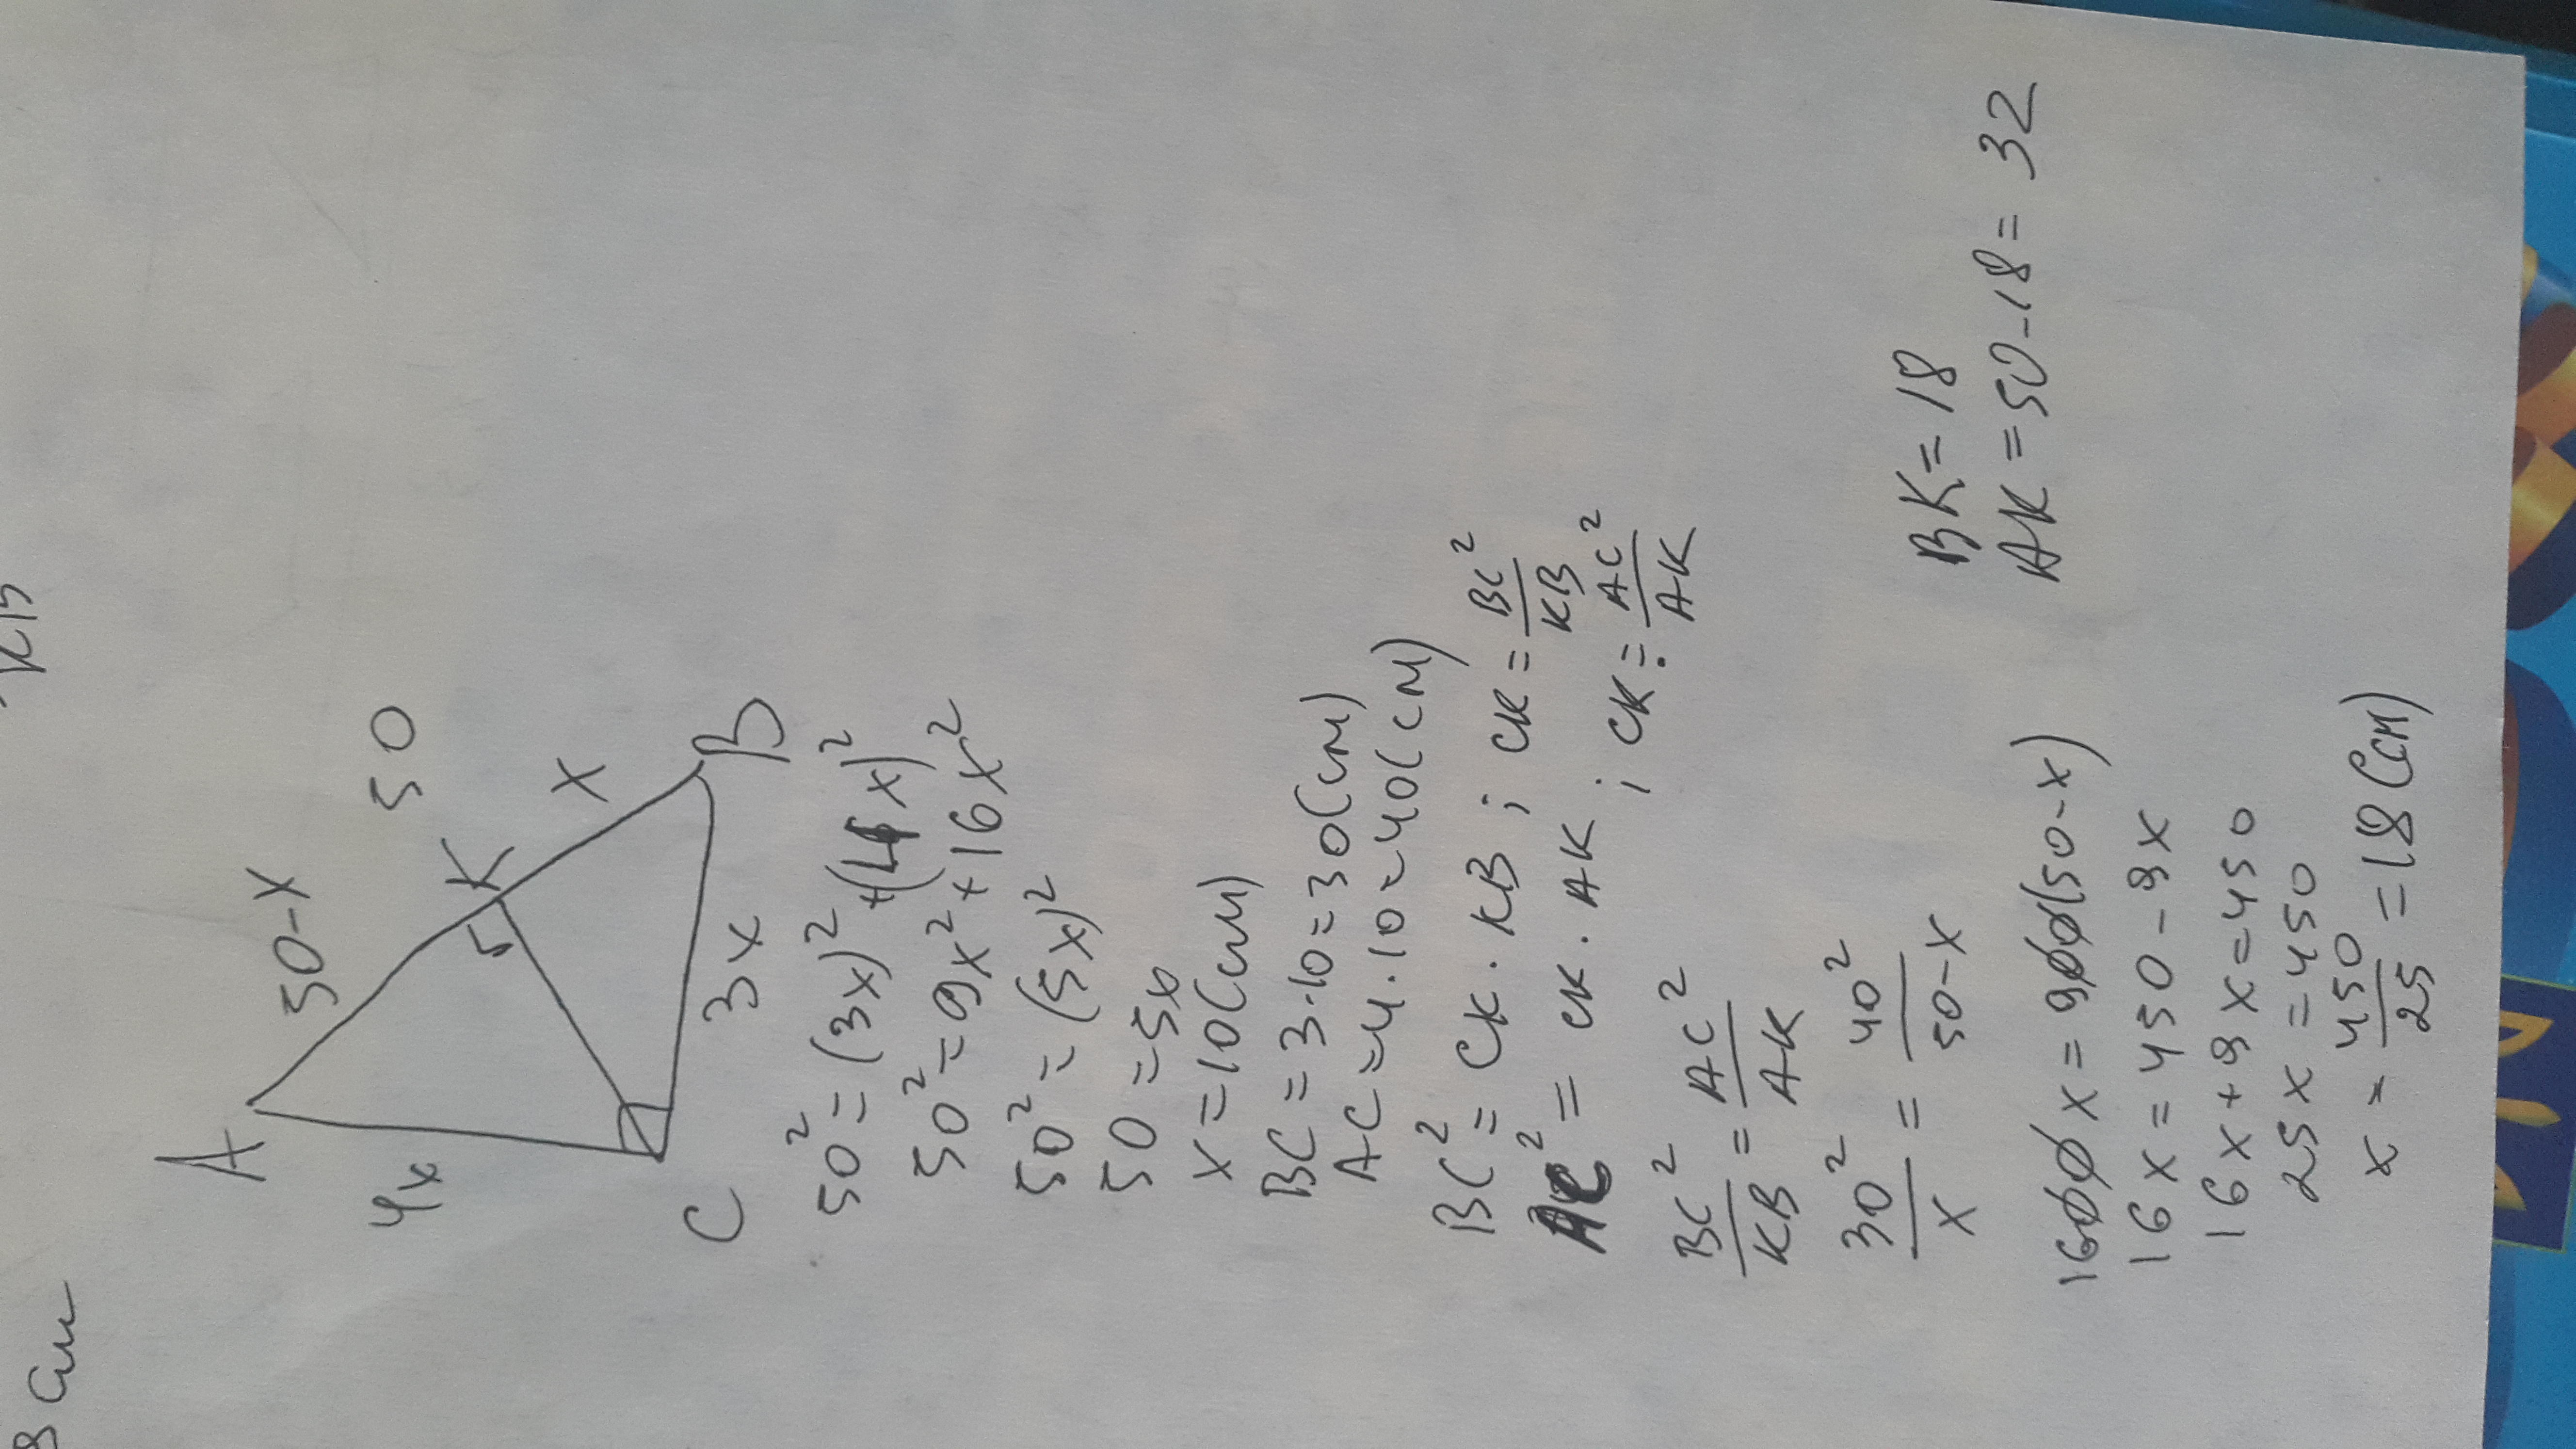 8 см
A
50-x
50
4x
K
x
C
3x
B
50² = (3x)² + (4x)²
50² = 9x² + 16x²
50² = (5x)²
50 = 5x
x = 10(см)
BC = 3·10 = 30(см)
AC = 4·10 = 40(см)
BC² = CK · KB ; CK = BC²/KB
AC² = CK · AK ; CK = AC²/AK
BC²/KB = AC²/AK
30²/x = 40²/50-x
1600x = 900(50-x)
16x = 450-9x
16x+9x=450
25x = 450
x = 450/25 = 18(см)
BK = 18
AK = 50-18 = 32